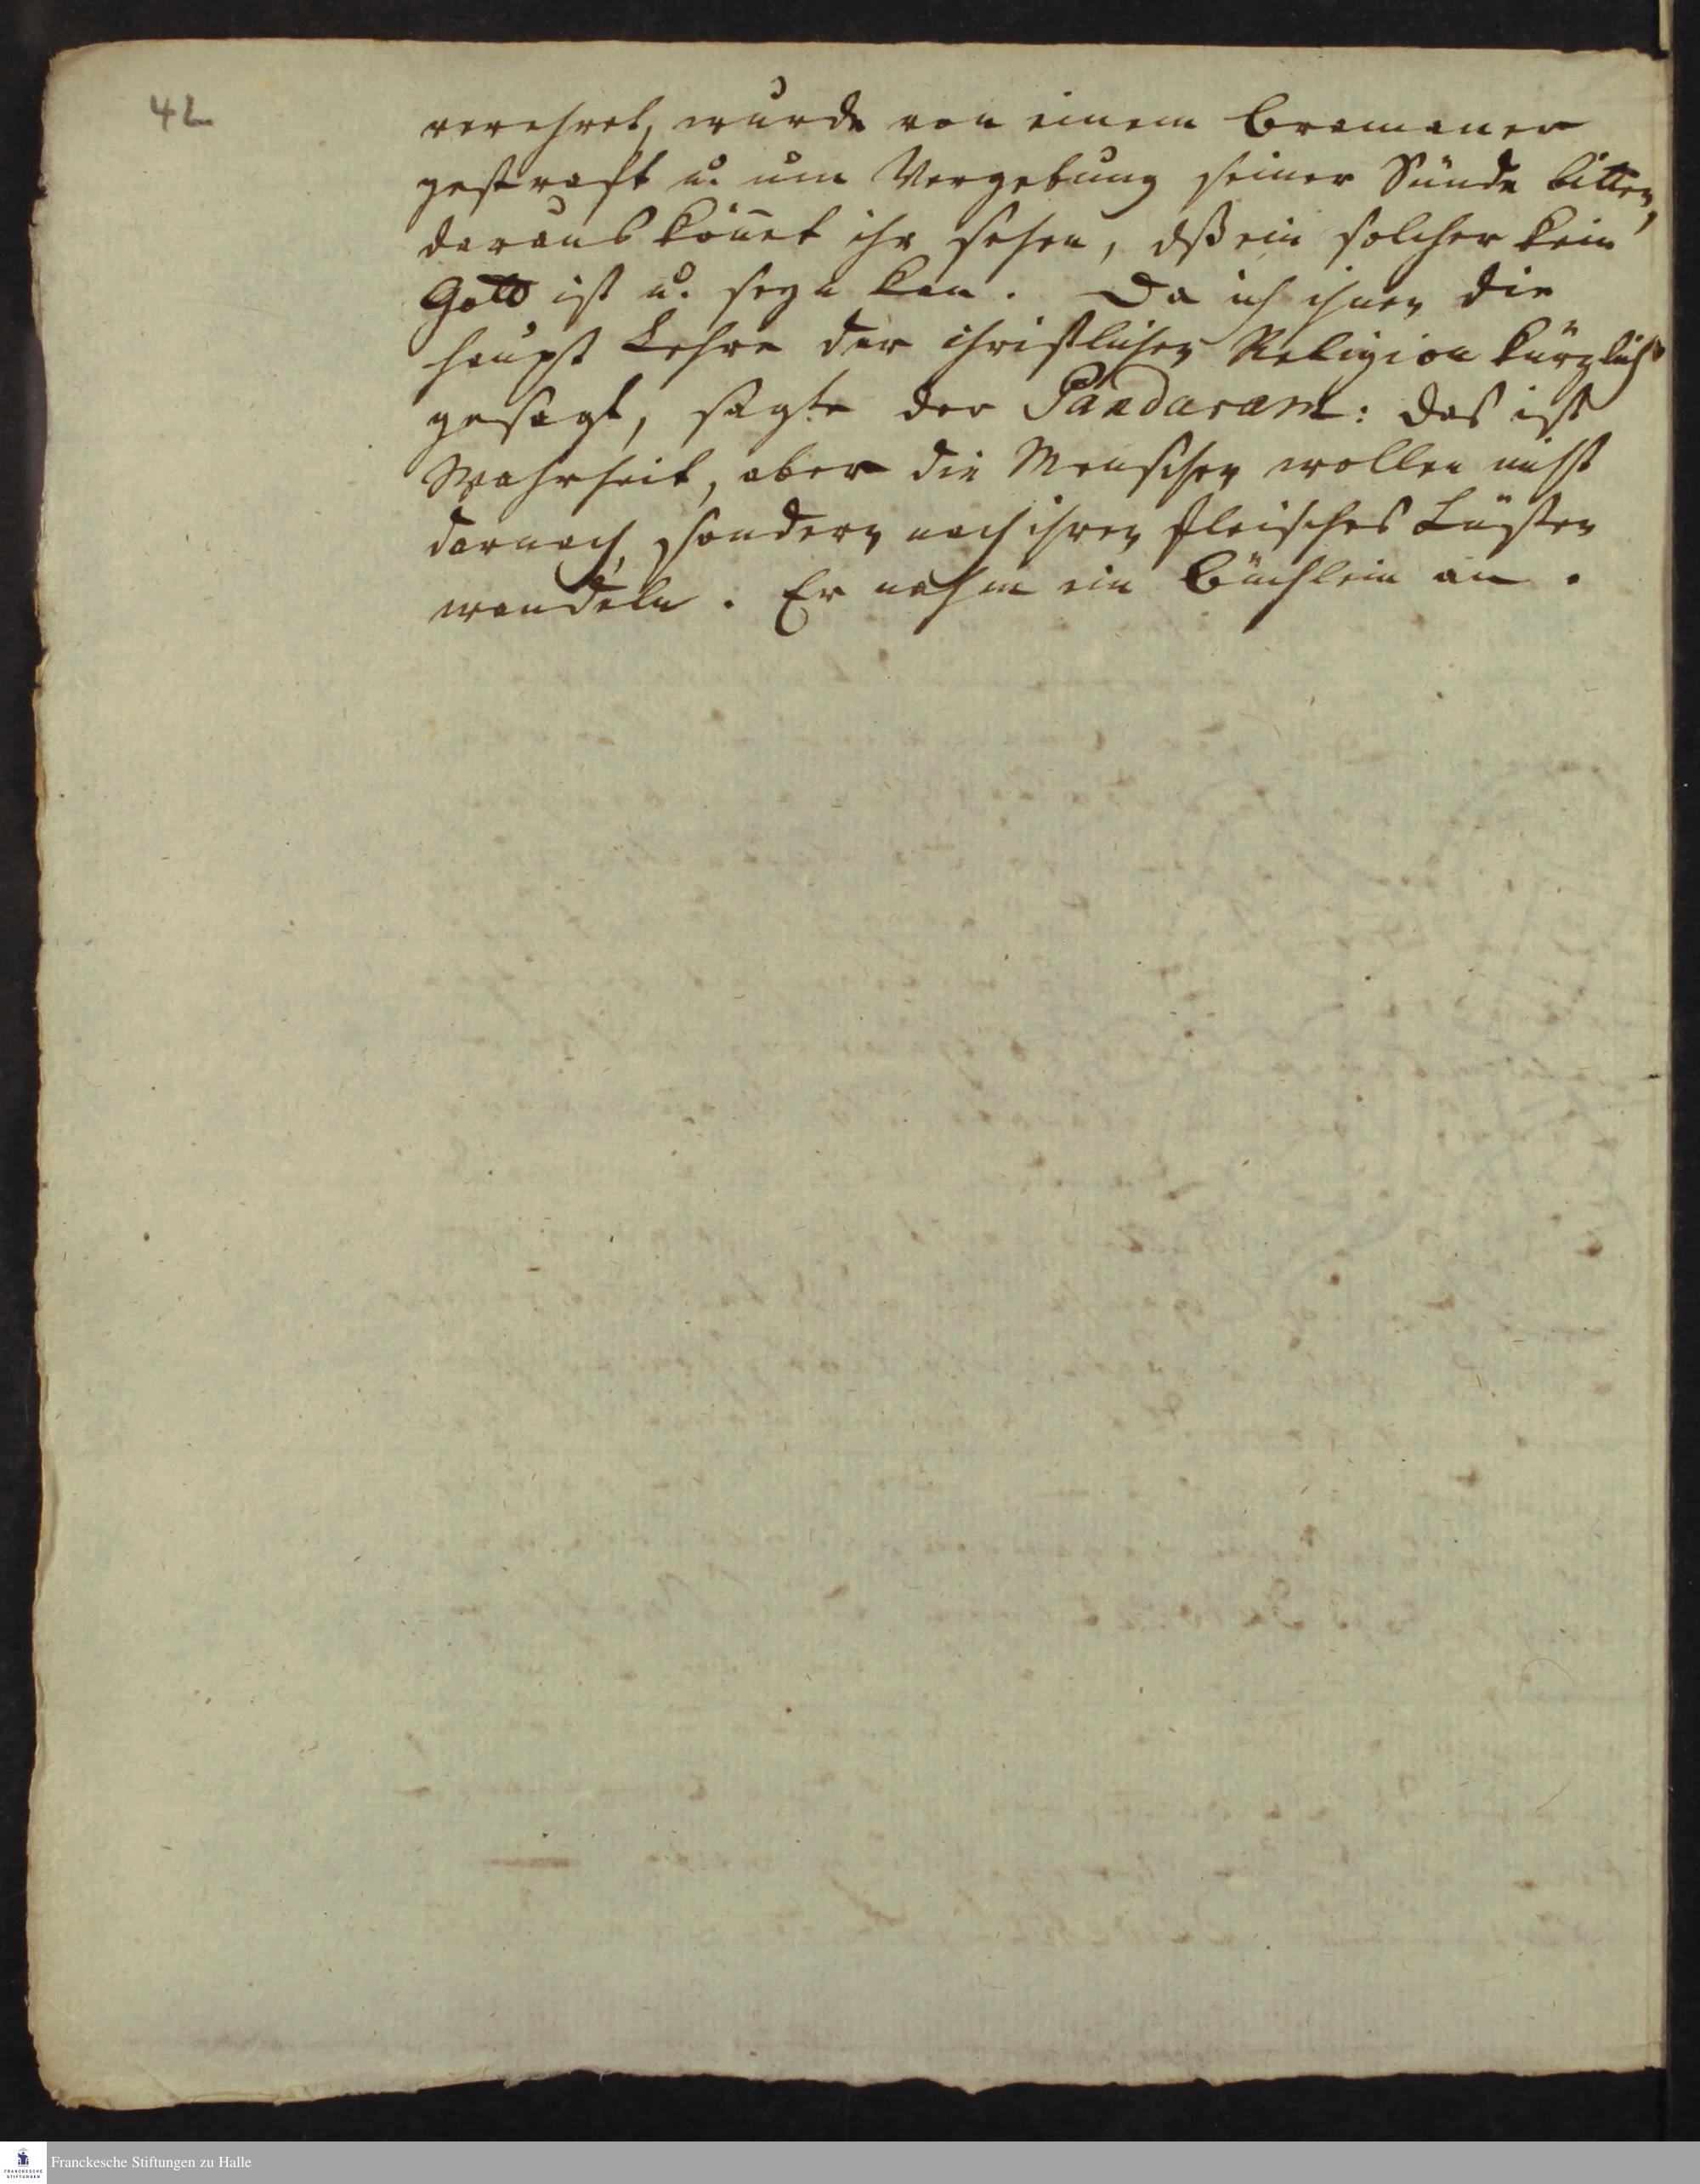 42
verehret, wurde von einem Bramaner
gestraft u. um Vergebung seiner Sünde bitten,
daraus könet ihr sehen, dß ein solcher kein
Gott ist u. seyn kan. Da ich ihnen die
haupt Lehre der christlichen Religion kürzlich
gesagt, sagte der Pandaram: das ist
Wahrheit, aber die Menschen wollen nicht
darnach, sondern nach ihren fleisches Lüsten
wandeln. Er nahm ein Büchlein an.
FRANCKESCHE
STIFTUNGEN
Franckesche Stiftungen zu Halle